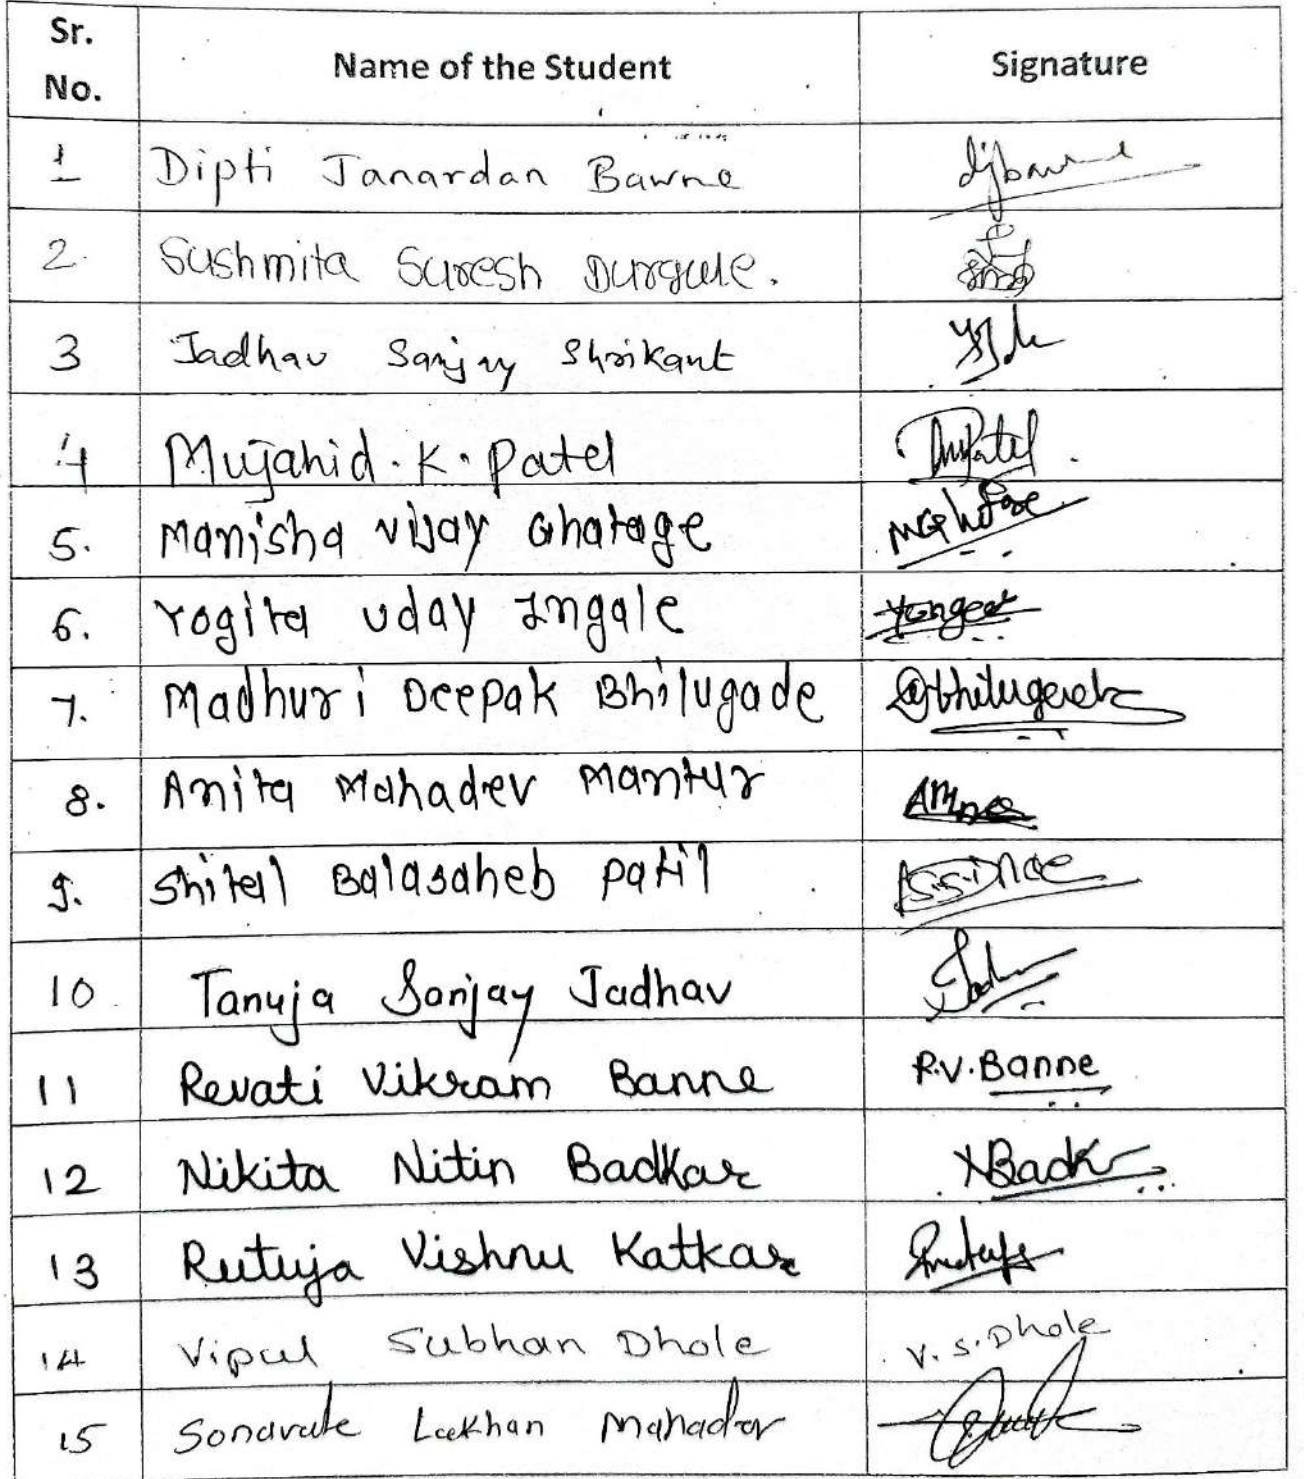 Sr. No. Name of the Student Signature
1 Dipti Janardan Bawne djbawne
2. Sushmita Suresh Durgule.
3 Jadhav Sanjay Shrikant
4 Mujahid. K. Patel MPatel.
5. Manisha Vijay Ghatage
6. Yogita Uday Ingale
7. Madhuri Deepak Bhilugade
8. Anita Mahadev Mantur
9. Shital Balasaheb Patil
10 Tanuja Sanjay Jadhav
11 Revati Vikram Banne R.V.Banne
12 Nikita Nitin Badkar
13 Rutuja Vishnu Katkar
14 Vipul Subhan Dhole V.S.Dhole
15 Lakhan Mahadev